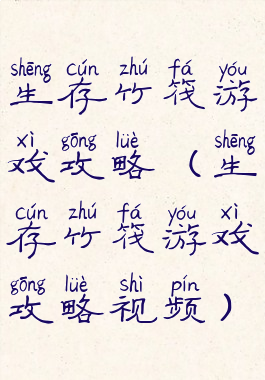 shēng cún zhú fá yóu
生存竹筏游
xì gōng lüè shēng
戏攻略（生
cún zhú fá yóu xì
存竹筏游戏
gōng lüè shì pín
攻略视频）